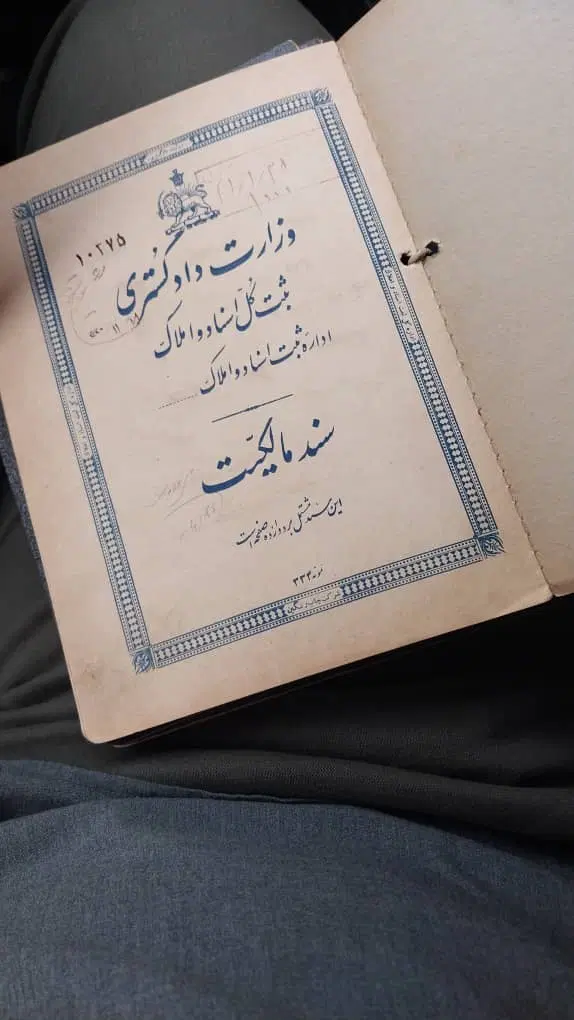 ۱/۱/۳۸
۱۰۰۰
۱۰۲۷۵
وزارت دادگستری
ثبت کل اسناد و املاک
اداره ثبت اسناد و املاک
سند مالکیت
این سند مشتمل بر دوازده صفحه است
نمونه ۳۳۴
شرکت چاپ رنگین